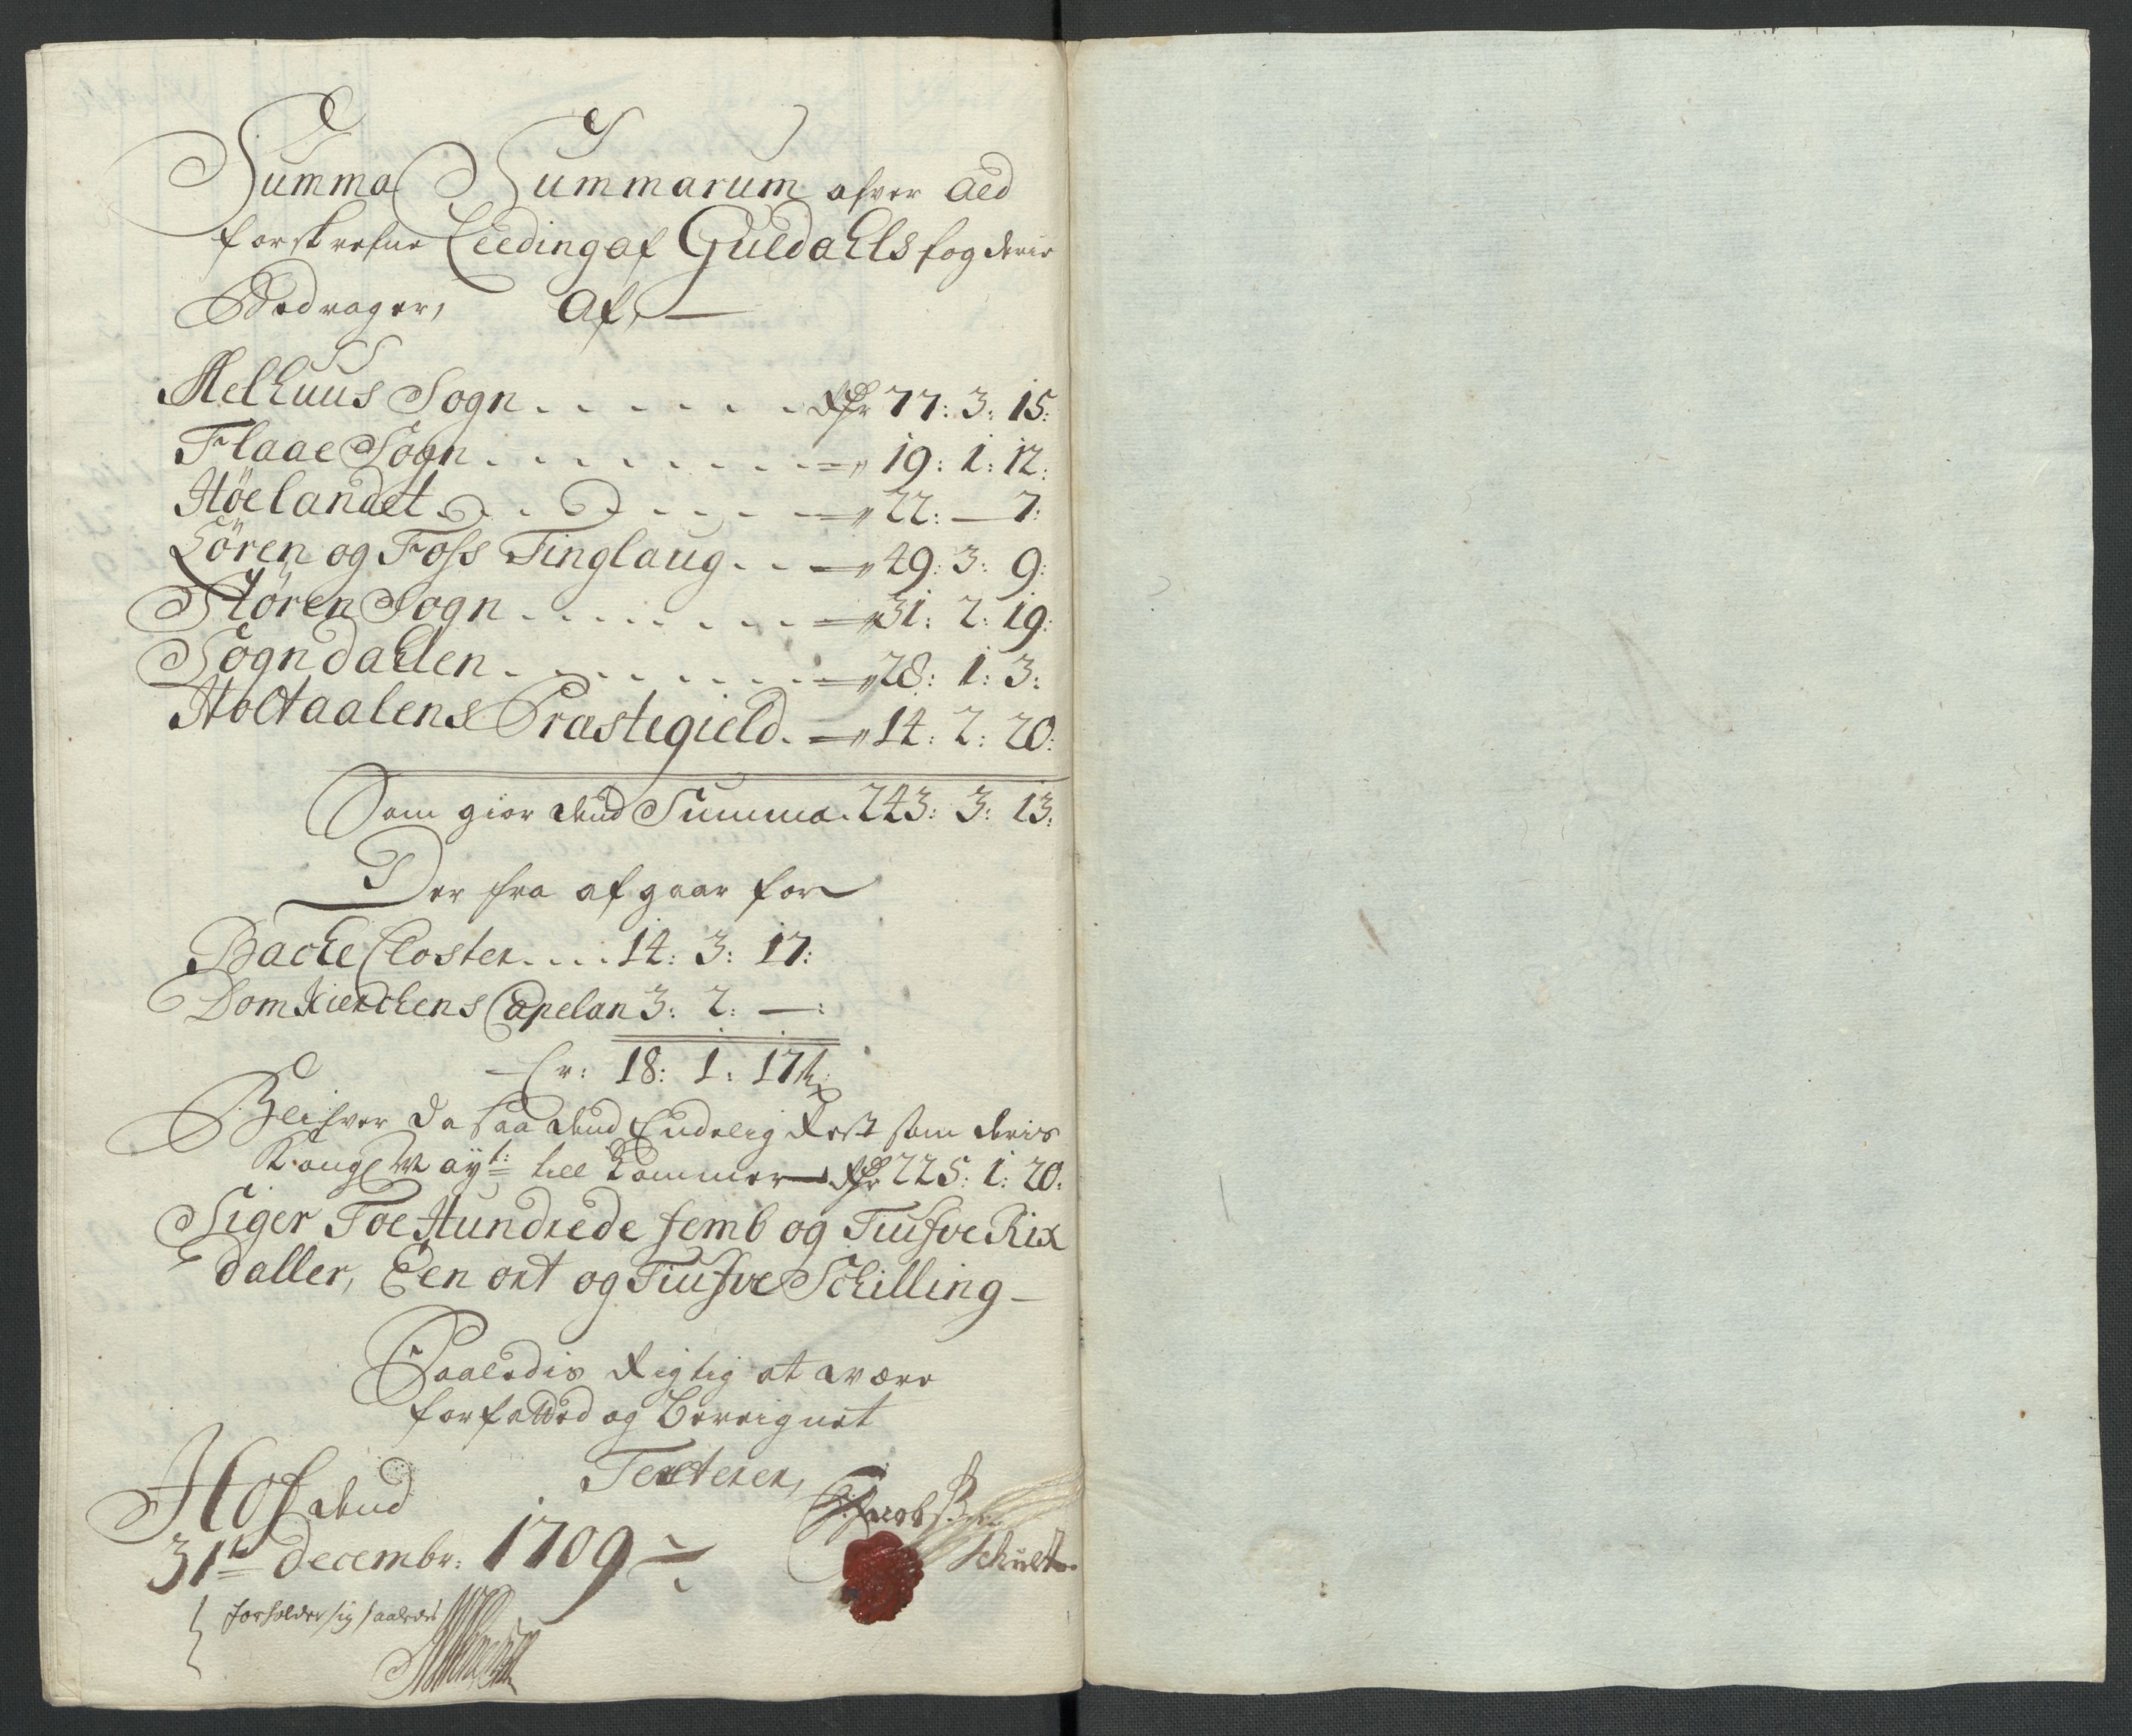 Summa Summarum ofver Ald
forskrefne Leeding af Guldahls fogderie
Bedrager, Af,
Melhuus Sogn . . . . . . Rdr 77: 3: 15:
Flaae Sogn . . . . . . . . . „ 19: 1: 12:
Høelandet . . . . . . . „ 22: — 7:
Sören og Foss Tinglaug . . . „ 49: 3: 9:
Stören Sogn . . . . . . . . „ 31: 2: 19:
Sogndahlen . . . . . . . . „ 28: 1: 3:
Holtaalens Præstegield . „ 14: 2: 20:
Som giør dend Summa . 243: 3: 13:
Der fra afgaar for
Backe Closter . . . . 14: 3: 17:
Domkierchens Capelan 3: 2: —:
Er: 18: 1: 17 s:
Blifver da saa dend Endelig Rest som deris
Kongl Mayt: till kommer Rdr 225: 1: 20:
Siger Toe Hundrede femb og Tiufve Rix
daller, Een ort og Tiufve Schilling —
Saaledis Rigtig at være
forfatted og bereignet
Testerer,
Hof dend
31te decembr: 1709
Jacob
Schult
forholder sig saaledes